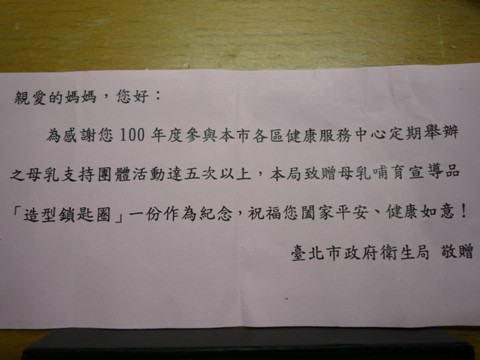 親愛的媽媽，您好：
為感謝您100年度參與本市各區健康服務中心定期舉辦
之母乳支持團體活動達五次以上，本局致贈母乳哺育宣導品
「造型鎖匙圈」一份作為紀念，祝福您闔家平安、健康如意！
臺北市政府衛生局 敬贈